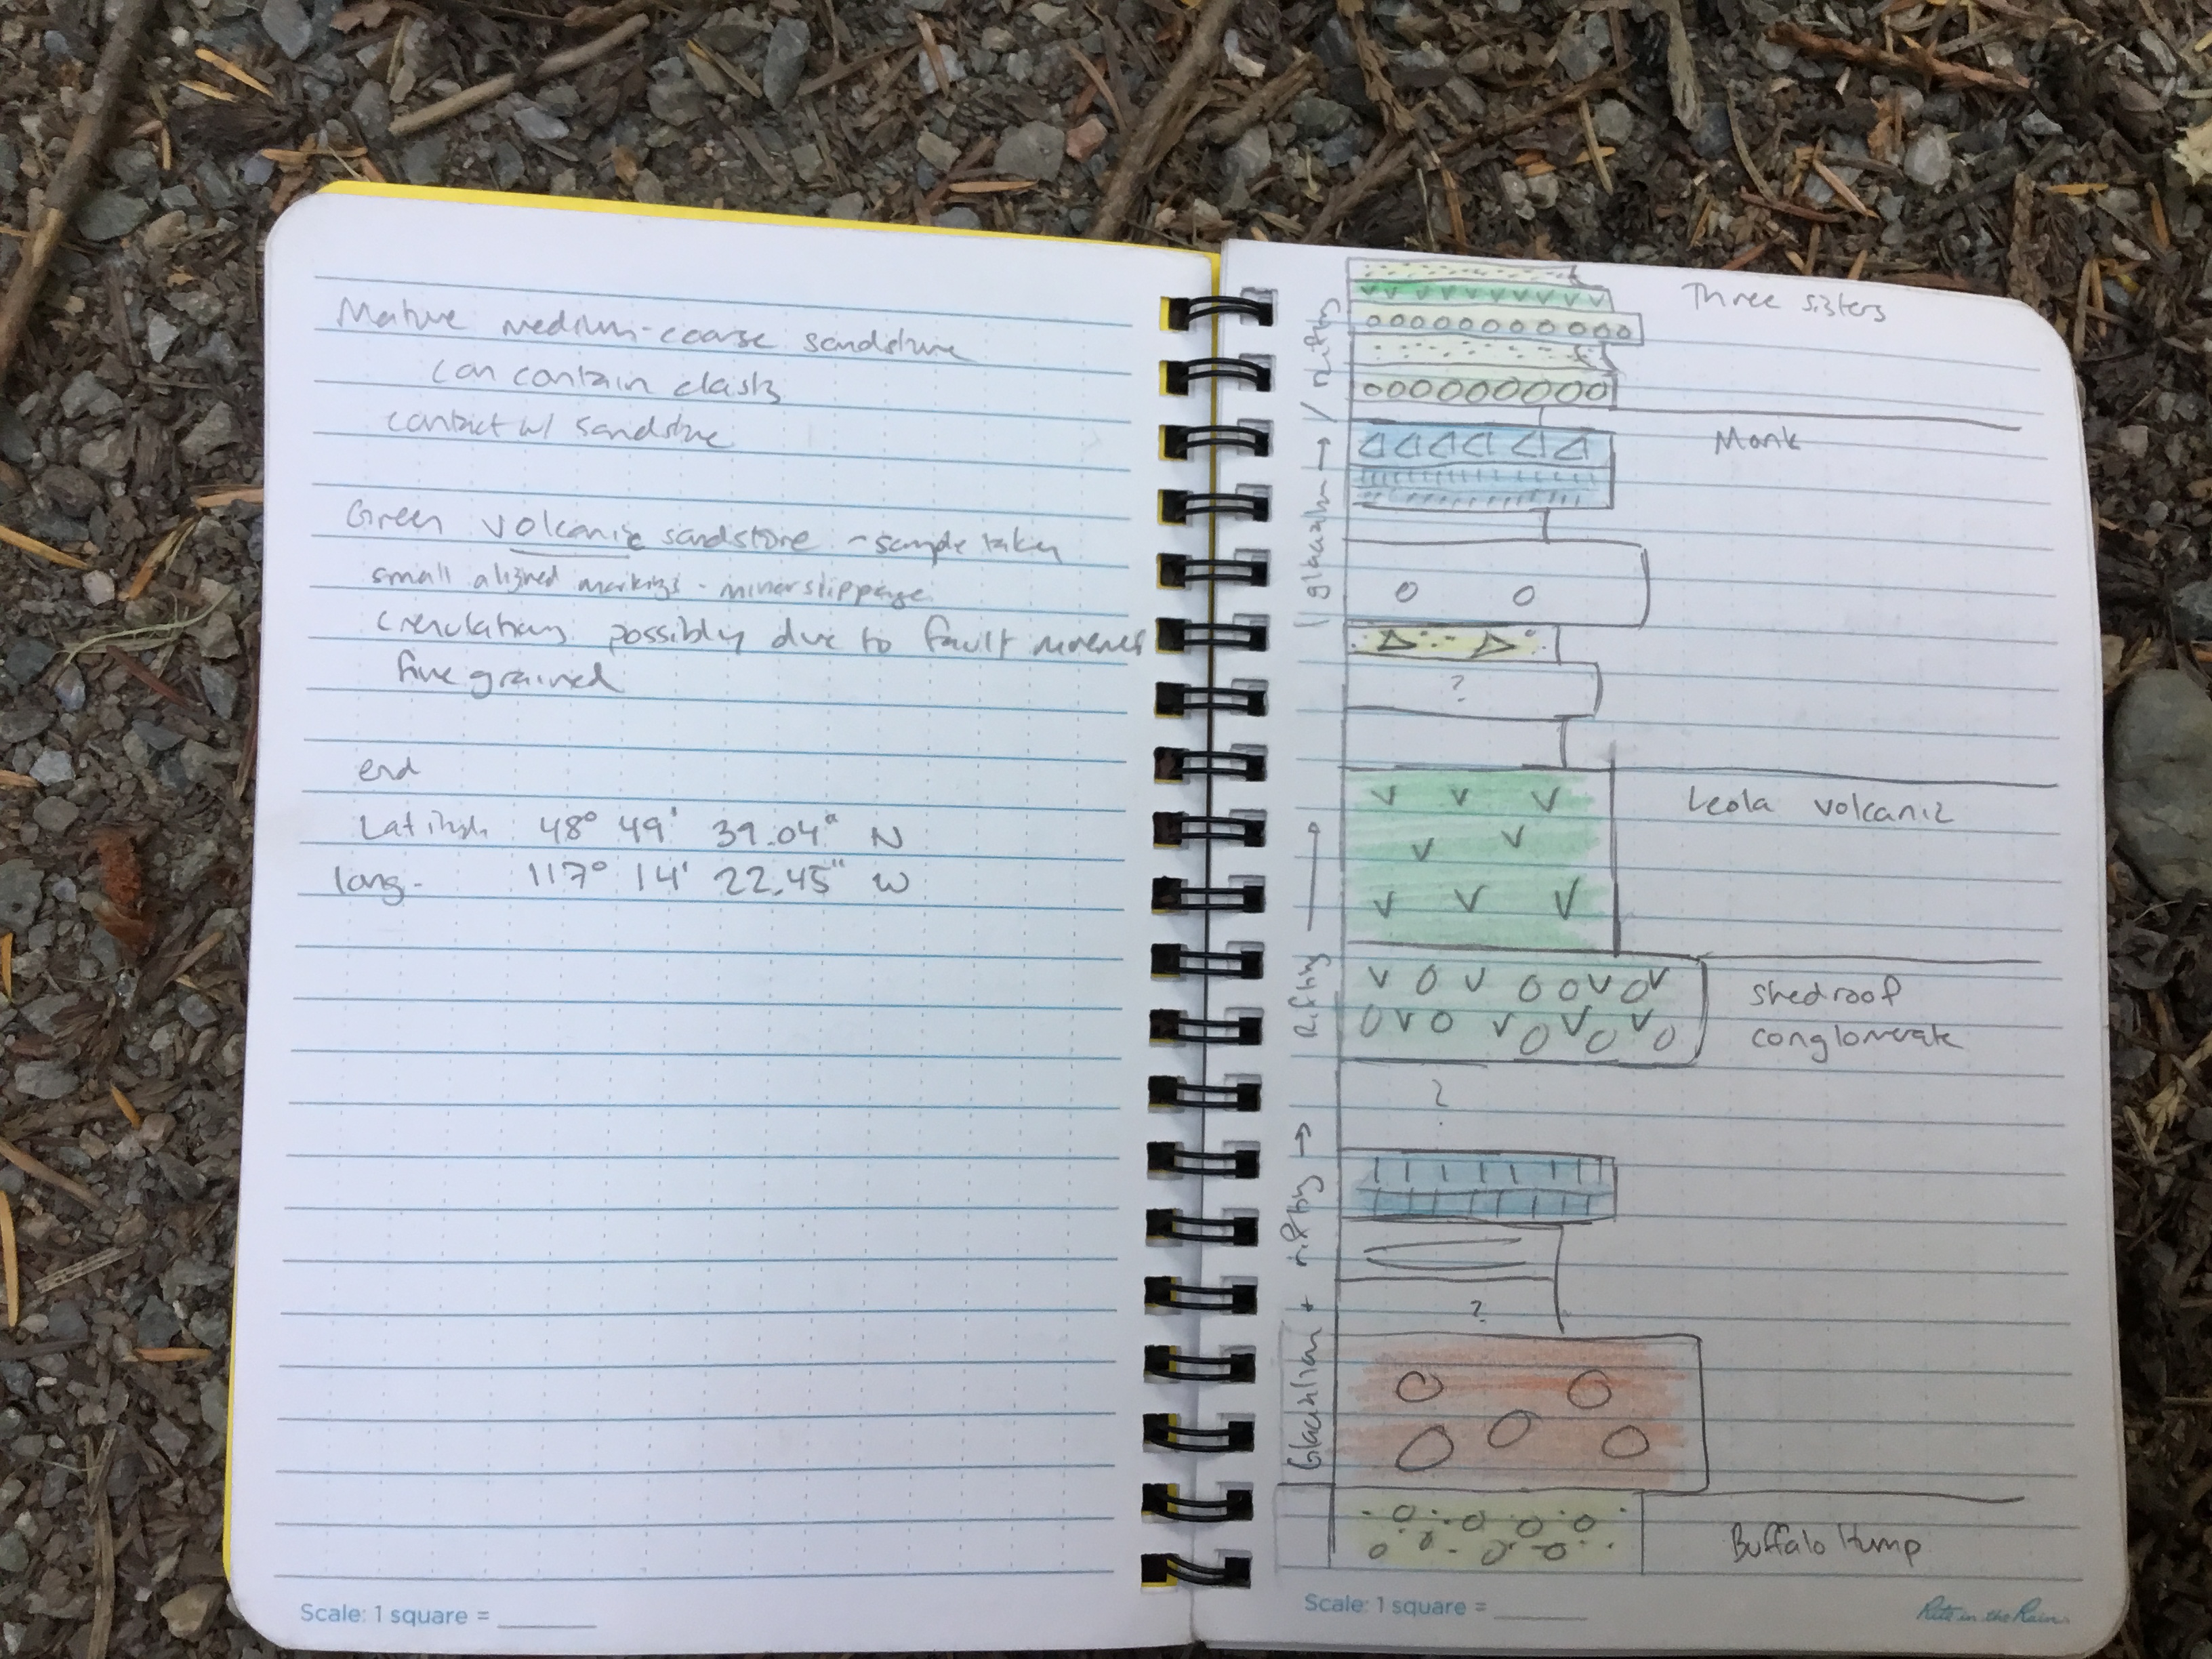 Mature medium-coarse sandstone
can contain clasts
contact w/ sandstone
Green volcanic sandstone - sample taken
small aligned markings - minor slippage
crenulations possibly due to fault
fine grained
end
Latitude 48° 49' 39.04" N
long- 117° 14' 22.45" W
Scale: 1 square =
Three sisters
/ rifting
Monk
glaciation →
?
Leola volcanic
Rifting →
shedroof
conglomerate
?
Glaciation + rifting →
?
Buffalo Hump
Scale: 1 square =
Rite in the Rain